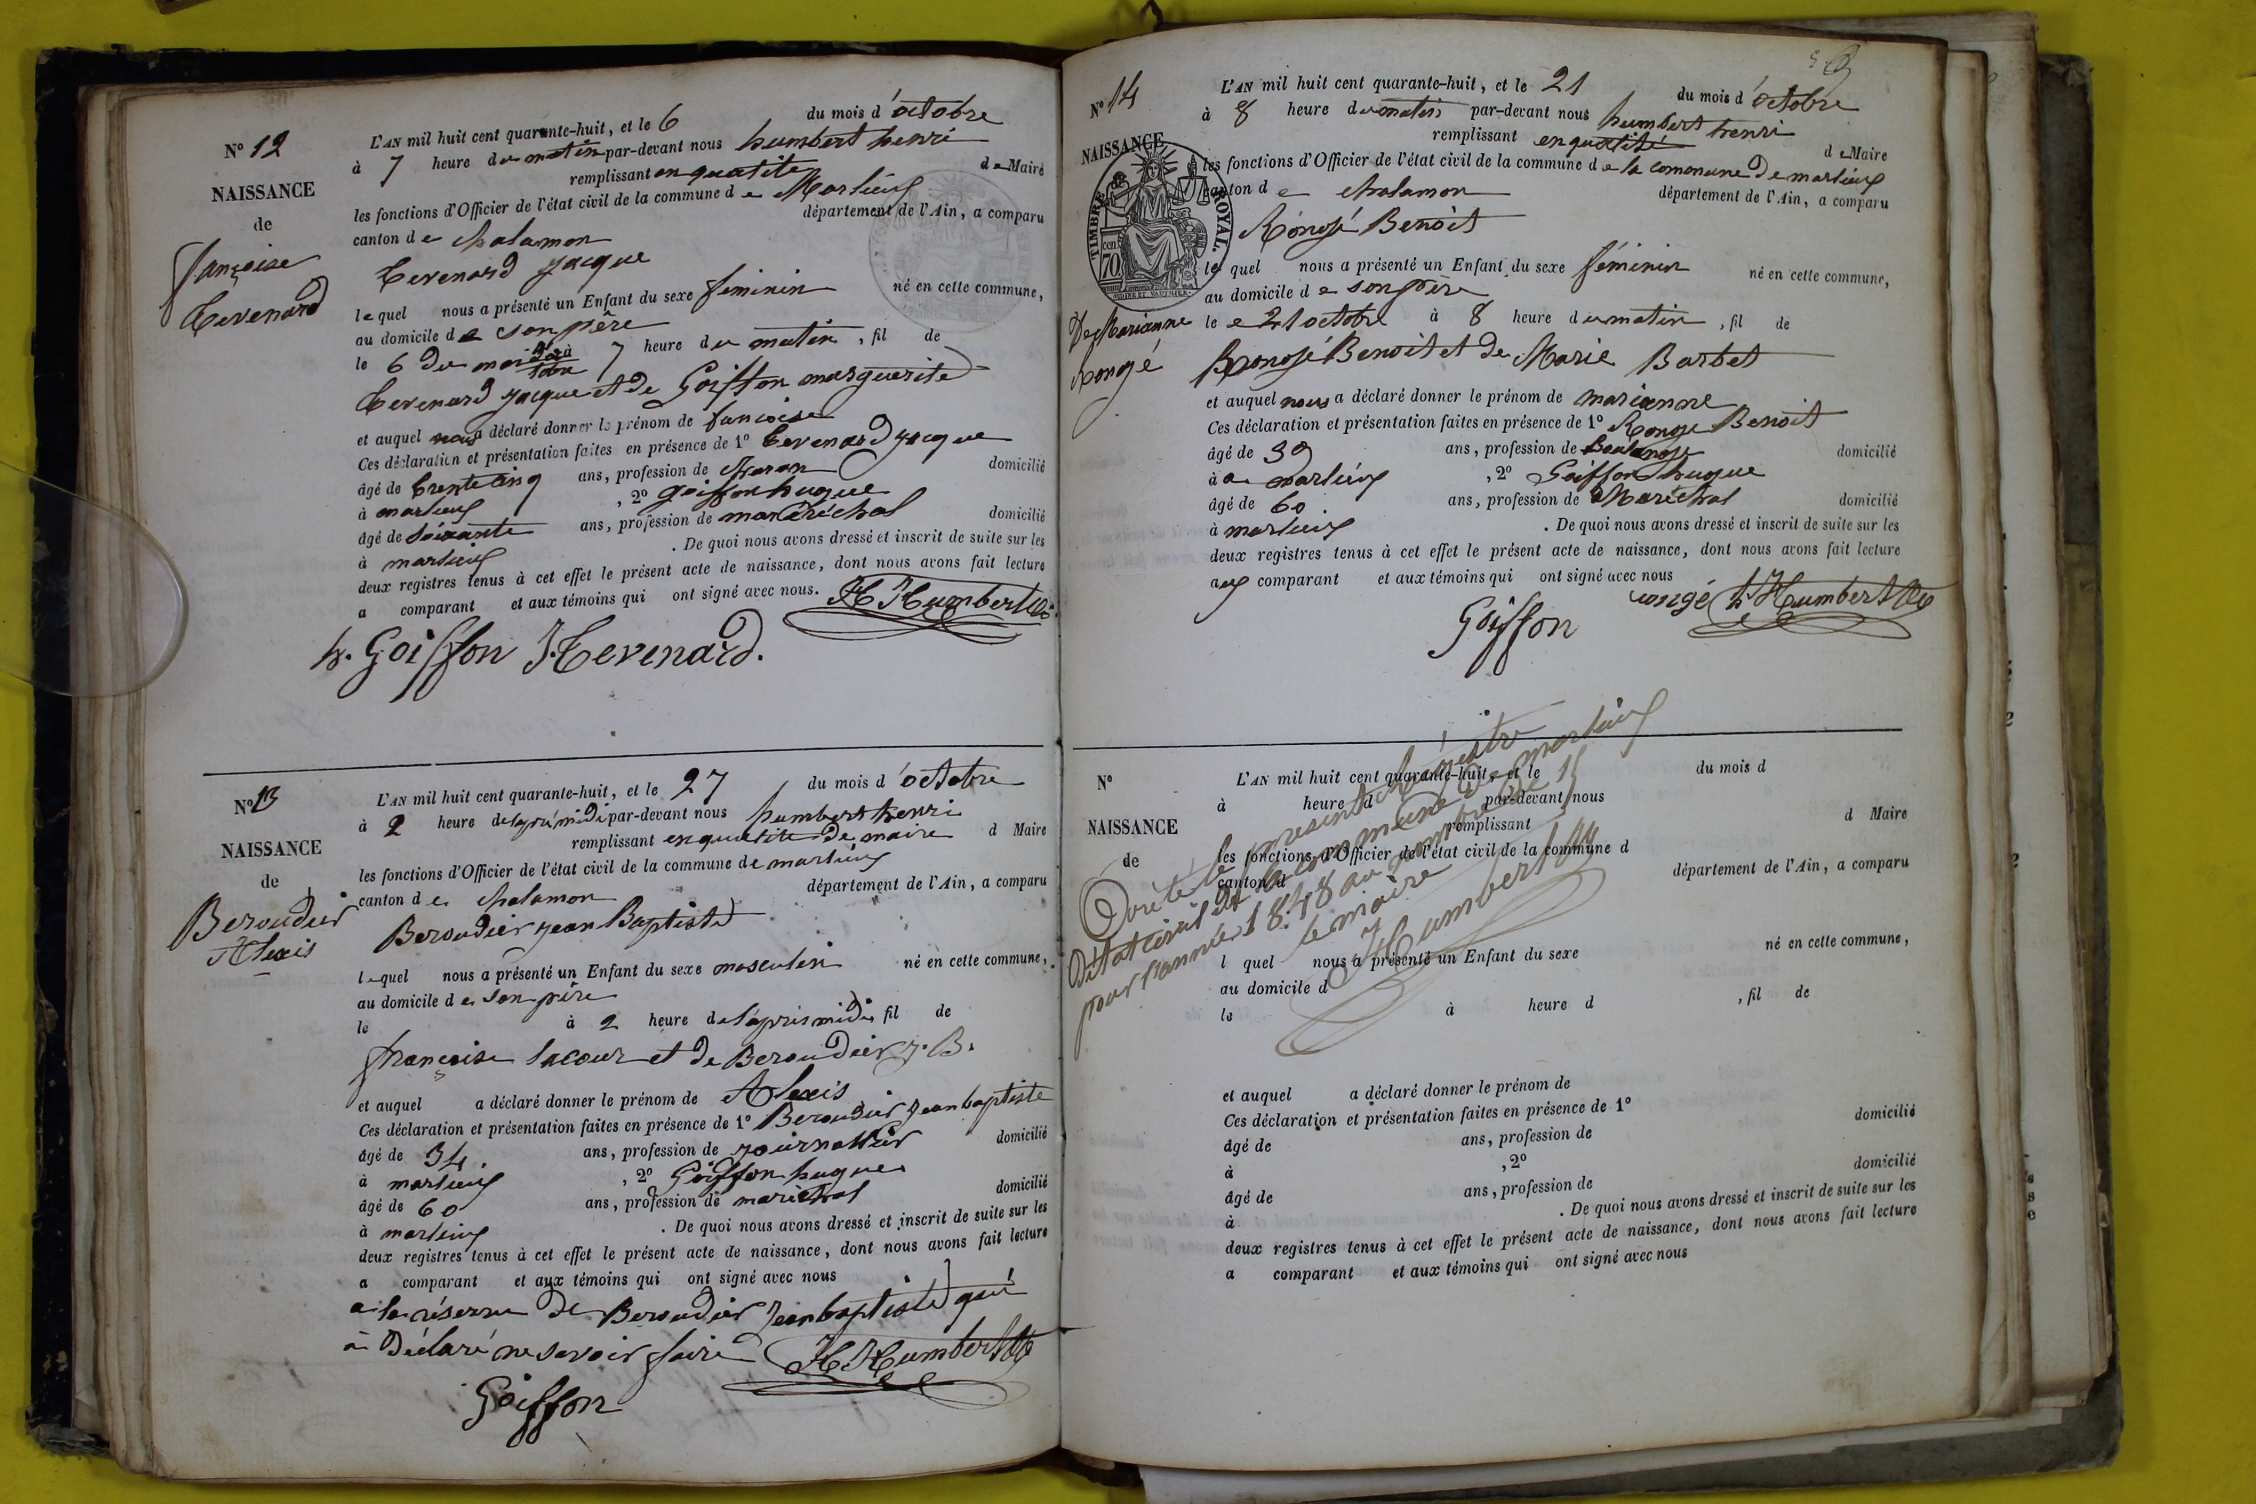 N° 12
NAISSANCE
de
françoise
Tevenard
L'AN mil huit cent quarante-huit, et le 6 du mois d'octobre
à 7 heure du matin par-devant nous humbert henri
remplissant en quatité de Maire
les fonctions d'Officier de l'état civil de la commune de Marlieux
canton de chalamon département de l'Ain, a comparu
Tevenard jacque
lequel nous a présenté un Enfant du sexe féminin né en cette commune,
au domicile de son père
le 6 du moi d'octobre à 7 heure du matin, fil de
Tevenard jacque et de Goiffon marguerite
et auquel nous a déclaré donner le prénom de fancoise
Ces déclaration et présentation faites en présence de 1° Tevenard jacque
âgé de trente cinq ans, profession de charon domicilié
à marlieux, 2° goiffon hugue
âgé de soixante ans, profession de maréchal domicilié
à marlieux. De quoi nous avons dressé et inscrit de suite sur les
deux registres tenus à cet effet le présent acte de naissance, dont nous avons fait lecture
a comparant et aux témoins qui ont signé avec nous. H Humbert
h. Goiffon J. Tevenard.
N° 13
NAISSANCE
de
Beroudier
Alexis
L'AN mil huit cent quarante-huit, et le 27 du mois d'octobre
à 2 heure de laprè midi par-devant nous humbert henri
remplissant en quatité de maire d Maire
les fonctions d'Officier de l'état civil de la commune de marlieux
canton de chalamon département de l'Ain, a comparu
Beroudier jean Baptiste
lequel nous a présenté un Enfant du sexe masculin né en cette commune,
au domicile de son père
le à 2 heure de l'apris midi, fil de
françoise lacour et de Beroudier J. B.
et auquel a déclaré donner le prénom de Alexis
Ces déclaration et présentation faites en présence de 1° Beroudier Jean baptiste
âgé de 34 ans, profession de journallier domicilié
à marlieux, 2° Goiffon hugue
âgé de 60 ans, profession de maréchal domicilié
à marlieux. De quoi nous avons dressé et inscrit de suite sur les
deux registres tenus à cet effet le présent acte de naissance, dont nous avons fait lecture
a comparant et aux témoins qui ont signé avec nous
a la réserve de Beroudier Jean baptiste qui
a Déclaré ne savoir faire H Humbert
Goiffon
N° 14
NAISSANCE
TIMBRE ROYAL.
70 cen
De Marianne
Rongé
L'AN mil huit cent quarante-huit, et le 21 du mois d'octobre
à 8 heure du matin par-devant nous humbert henri
remplissant en quatité de Maire
les fonctions d'Officier de l'état civil de la commune de la commune De marlieux
canton de chalamon département de l'Ain, a comparu
Rongé Benoit
lequel nous a présenté un Enfant du sexe féminin né en cette commune,
au domicile de son père
le 21 octobre à 8 heure du matin, fil de
Rongé Benoit et de Marie Barbet
et auquel nous a déclaré donner le prénom de marianne
Ces déclaration et présentation faites en présence de 1° Ronge Benoit
âgé de 39 ans, profession de Boulanger domicilié
à marlieux, 2° Goiffon hugue
âgé de 60 ans, profession de Maréchal domicilié
à marlieux. De quoi nous avons dressé et inscrit de suite sur les
deux registres tenus à cet effet le présent acte de naissance, dont nous avons fait lecture
aux comparant et aux témoins qui ont signé avec nous
rongé H Humbert
Goiffon
N°
NAISSANCE
de
L'AN mil huit cent quarante-huit, et le du mois d
à heure d par-devant nous
remplissant d Maire
les fonctions d'Officier de l'état civil de la commune d
canton d département de l'Ain, a comparu
l quel nous a présenté un Enfant du sexe né en cette commune,
au domicile d
le à heure d, fil de
et auquel a déclaré donner le prénom de
Ces déclaration et présentation faites en présence de 1°
âgé de ans, profession de domicilié
à, 2°
âgé de ans, profession de domicilié
à. De quoi nous avons dressé et inscrit de suite sur les
deux registres tenus à cet effet le présent acte de naissance, dont nous avons fait lecture
a comparant et aux témoins qui ont signé avec nous
le present Régistre
D'état civil de la commune De marlieux
pour l'année 1848 au nombre De 15
le maire
H Humbert